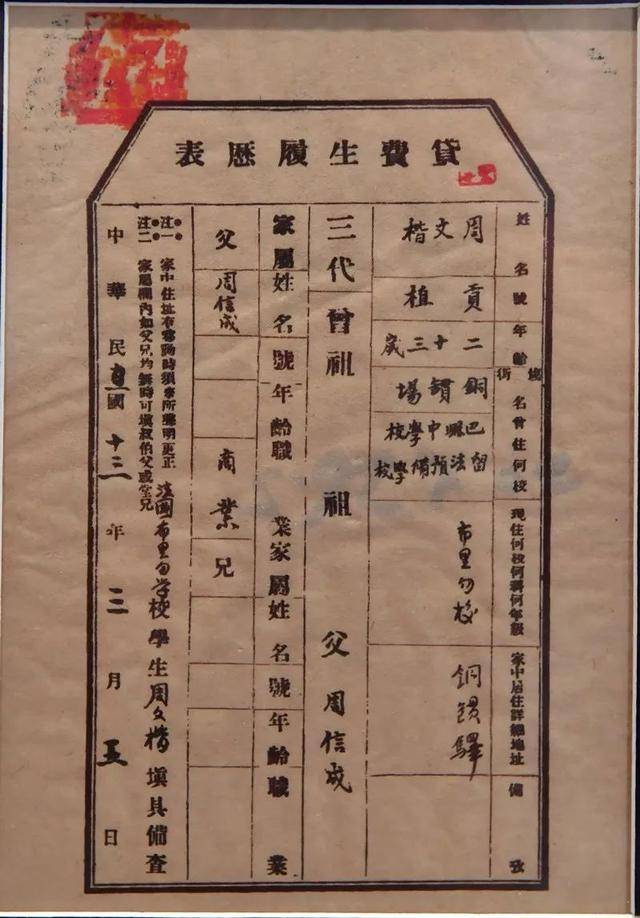 貸費生履歷表
姓名 號 年齡 場街名 曾住何校 現住何校何科何年級 家中居住詳細地址 備攷
周文楷 貢植 二十三歲 銅罐場 巴縣中學校 布里勻校 銅鑵驛
留法預備學校
三代 曾祖 祖 父 周信成
家屬姓名 號 年齡 職業 家屬姓名 號 年齡 職業
父 周信成 商業 兄
注一 家中住址有移動時須來所聲明更正
注二 家屬欄內如父兄均無時可填叔伯父或堂兄
法國布里勻學校學生周文楷填具備查
中華民國十三年三月五日